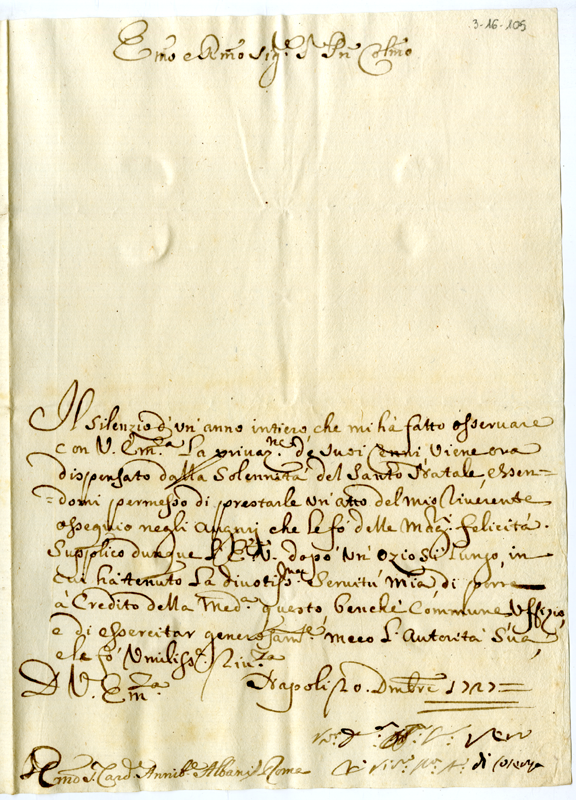 3-16-105
Emo e Rmo Sig.r P.rn Colmo
Il silenzio d'un'anno intiero, che mi hà fatto osseruare
con V. Em.za La priuaz.ne de suoi cenni viene ora
dispensato dalla Solennità del Santo Natale, essen=
=domi permesso di prestarle un'atto del mio riuerente
ossequio negli augurij che le fò delle Mag.i felicità.
Supplico dunque l'E.V. dopò un'ozio sì lungo, in
cui hà tenuto La diuotiss.ma Seruitù mia, di porre
à Credito della Med.a questo benche Commune Uffizio,
e di essercitar generosam.te meco L'Autorità Sua,
e le fò Umiliss.a Riu.za
D V. Em.za Napoli 20. Dmbre 1727
Emo S. Card. Annib.e Albani Roma